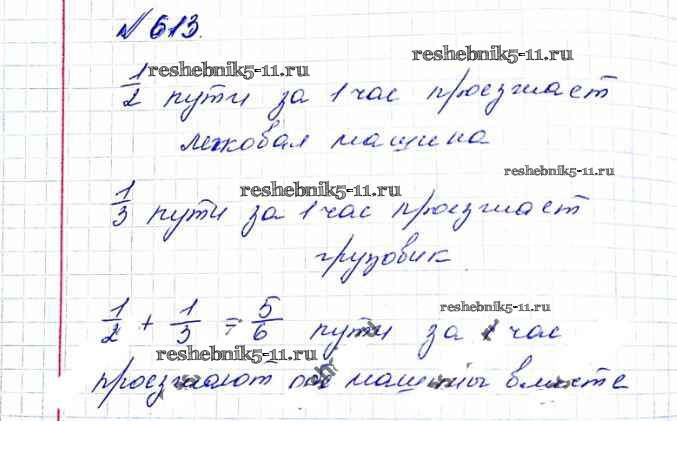 № 613.
reshebnik5-11.ru
reshebnik5-11.ru
1/2 пути за 1 час проезжает
легковая машина
reshebnik5-11.ru
reshebnik5-11.ru
1/3 пути за 1 час проезжает
грузовик
reshebnik5-11.ru
1/2 + 1/3 = 5/6 пути за 1 час
reshebnik5-11.ru
проезжают машины вместе